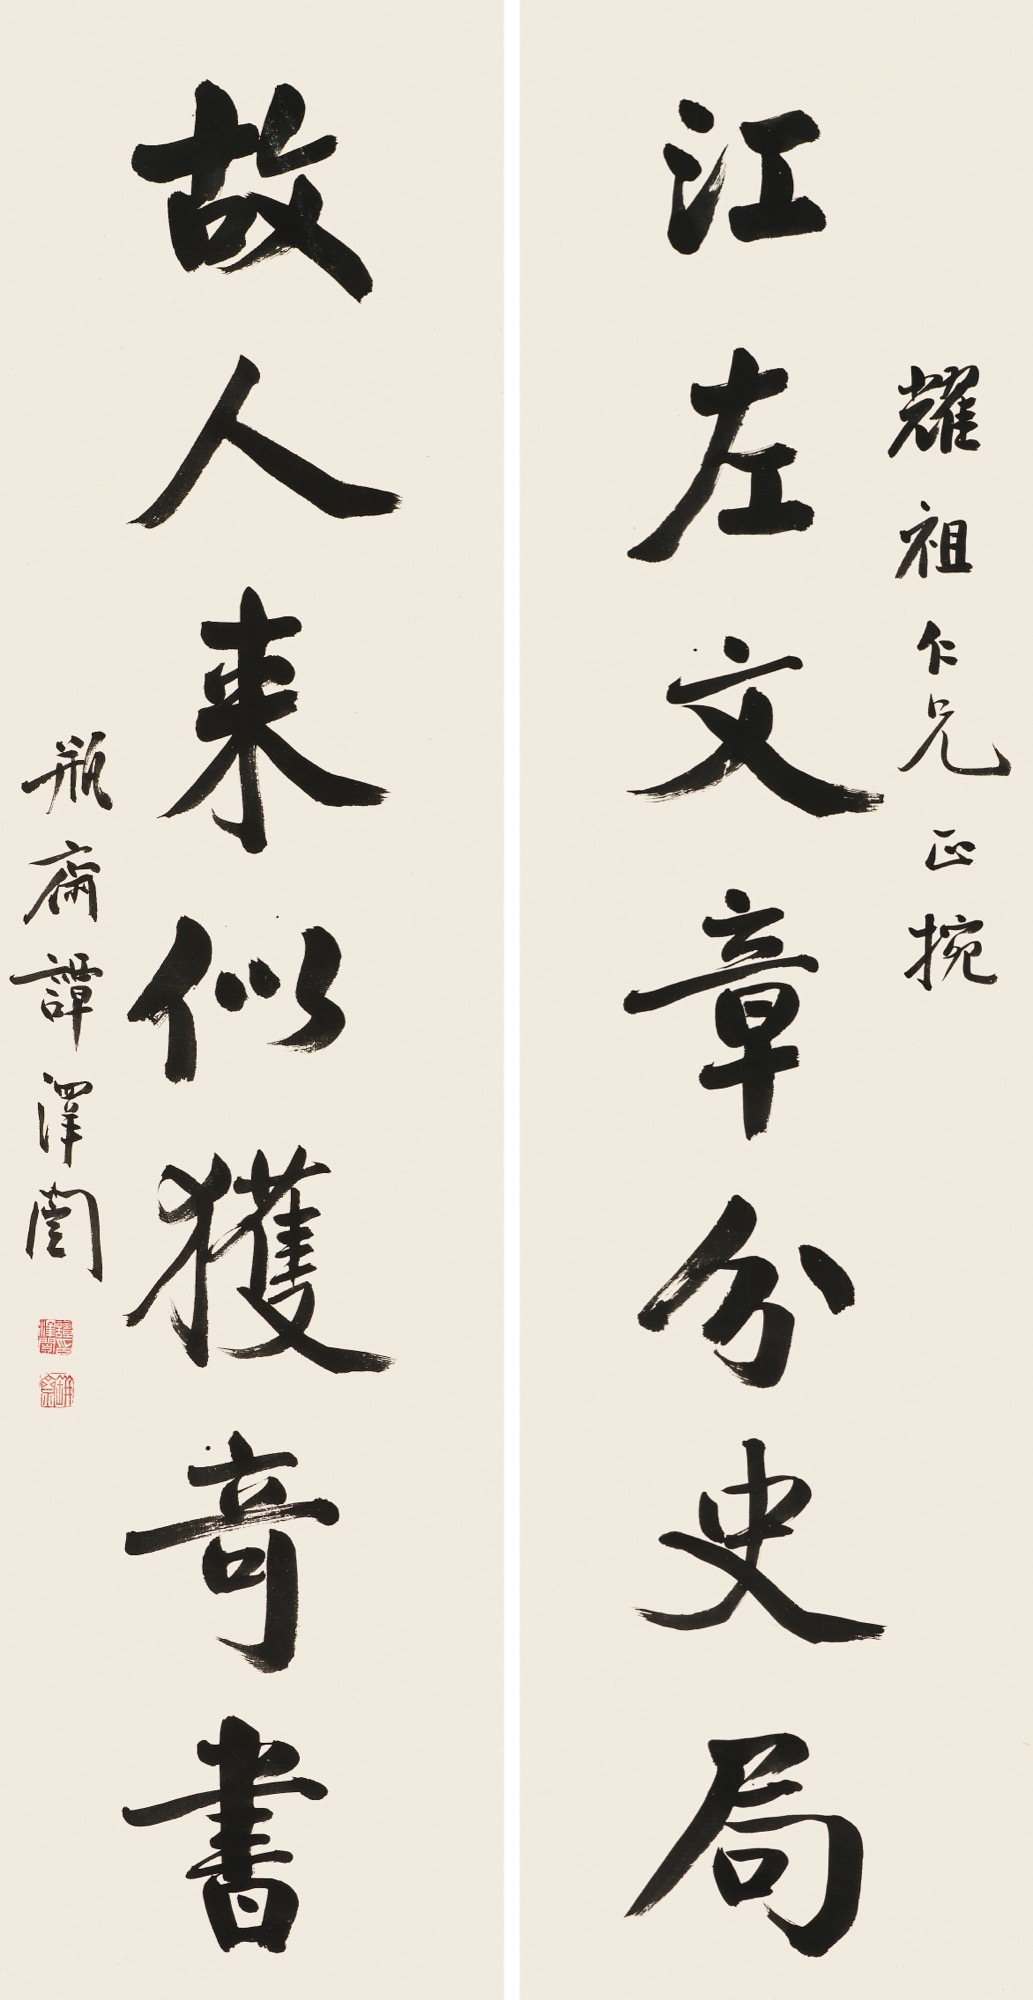 耀祖仁兄正捥
江左文章分史局
故人来似獲奇書
瓶齋譚澤闓